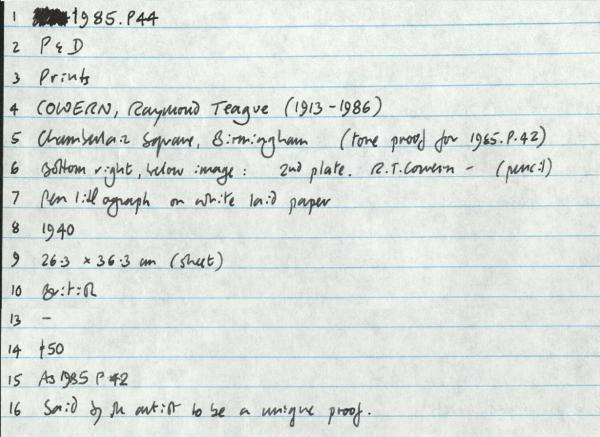 1 1985.P44
2 P & D
3 Prints
4 COWERN, Raymond Teague (1913-1986)
5 Chamberlain Square, Birmingham (tone proof for 1985.P.42)
6 Bottom right, below image: 2nd plate. R.T.Cowern - (pencil)
7 Pen lithograph on white laid paper
8 1940
9 26.3 x 36.3 cm (sheet)
10 British
13 -
14 £50
15 As 1985 P 42
16 Said by the artist to be a unique proof.